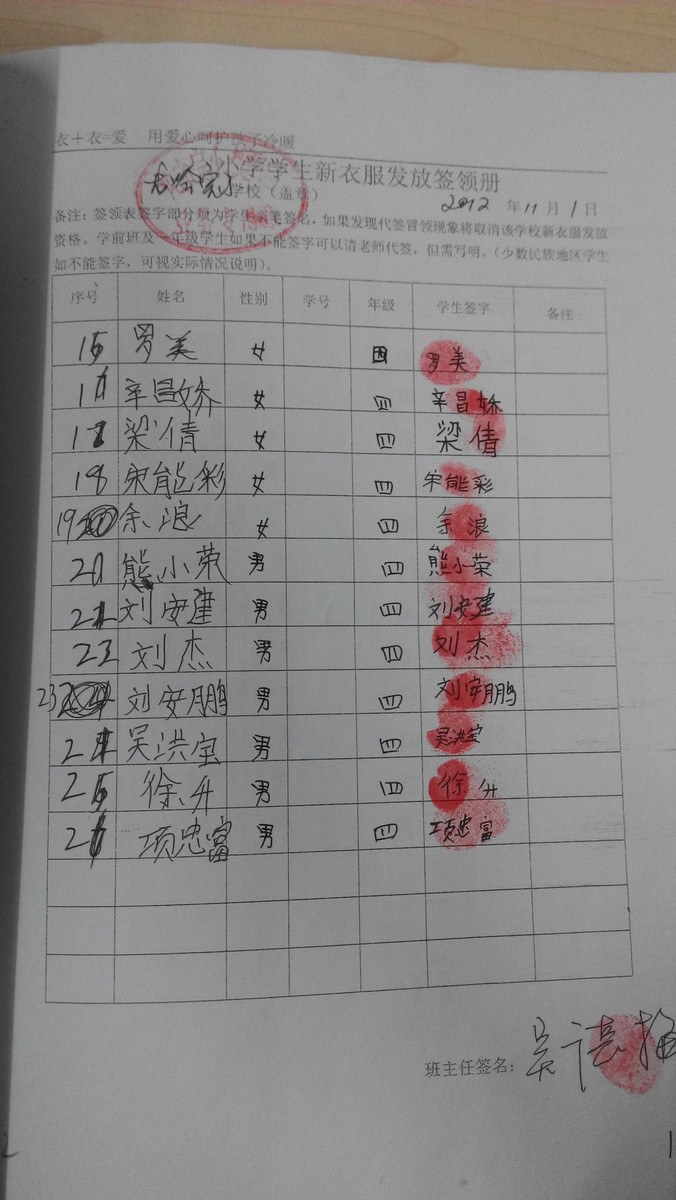 衣+衣=爱 用爱心呵护孩子冷暖
小学学生新衣服发放签领册
学校（盖章） 2012 年 11 月 1 日
备注：签领表签字部分须为学生亲笔签名，如果发现代签冒领现象将取消该学校新衣服发放
资格。学前班及一年级学生如果不能签字可以请老师代签，但需写明。（少数民族地区学生
如不能签字，可视实际情况说明）。
序号 姓名 性别 学号 年级 学生签字 备注
罗美 女 四 罗美
辛昌娇 女 四 辛昌娇
梁倩 女 四 梁倩
18 宋能彩 女 四 宋能彩
19 余浪 女 四 余浪
熊小荣 男 四 熊小荣
刘安建 男 四 刘安建
刘杰 男 四 刘杰
23 刘安鹏 男 四 刘安鹏
吴洪宝 男 四 吴洪宝
徐升 男 四 徐升
项忠富 男 四 项忠富
班主任签名：吴